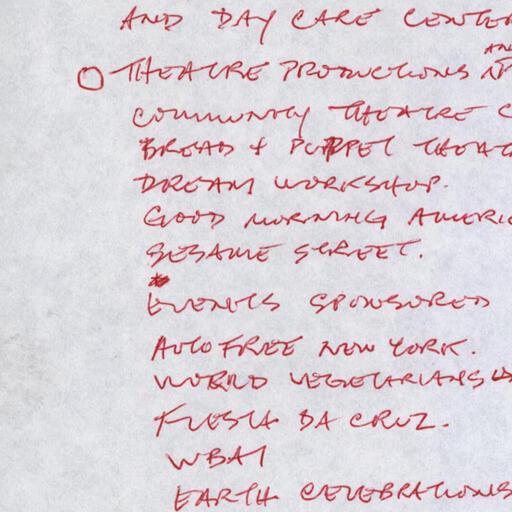 AND DAY CARE CENTER
O THEATRE PRODUCTIONS AND
COMMUNITY THEATRE C
BREAD & PUPPET THEAT
DREAM WORKSHOP.
GOOD MORNING AMERIC
SESAME STREET.
EVENTS SPONSORED
AUTO FREE NEW YORK.
WORLD VEGETARIANS
FIESTA DA CRUZ.
WBAI
EARTH CELEBRATIONS